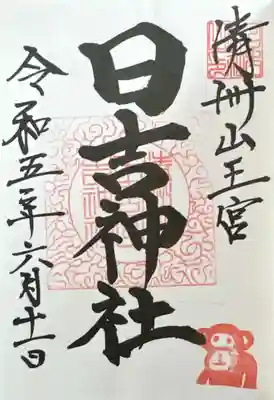 清洲山王宮
日吉神社
令和五年六月十一日